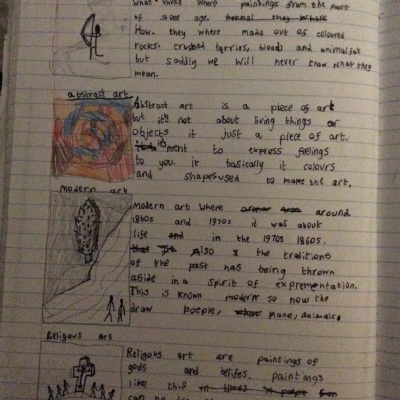 what these where paintings from the past
of stone age. normal they where
How. they where made out of coloured
rocks. crushed berries, blood and animal fat
but saddly we will never know what they
mean.
abstract art
Abstract art is a piece of art
but it's not about living things or
Objects it just a piece of art.
it ment to express feelings
to you. it basically it colours
and shapes used to make the art.
modern art
Modern art where around
1860s and 1970s it was about
life and in the 1970s 1860s.
that Also & the traditions
of the past has being thrown
aside in a spirit of exprementation.
This is known modern so now the
draw poeple, place, animals.
Religous art
Religous art are paintings of
gods and belifes. paintings
like this in times
can